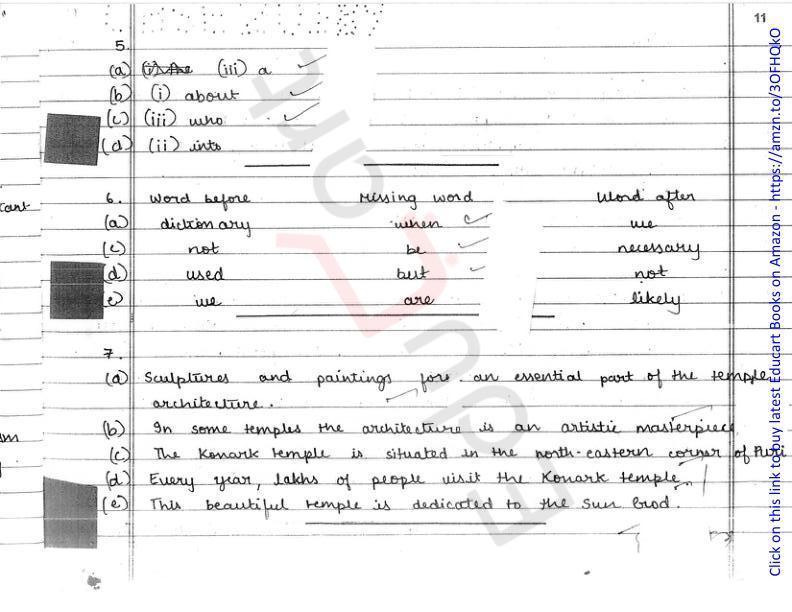 11
5.
(a) (iii) a
(b) (i) about
(c) (iii) who
(d) (ii) into
6. Word before Missing word Word after
(a) dictionary when we
(c) not be necessary
(d) used but not
(e) we are likely
7.
(a) Sculptures and paintings form an essential part of the temple
architecture.
(b) In some temples the architecture is an artistic masterpiece
(c) The Konark temple is situated in the north-eastern corner of Puri
(d) Every year, lakhs of people visit the Konark temple.
(e) This beautiful temple is dedicated to the Sun God.
Click on this link to buy latest Educart Books on Amazon - https://amzn.to/3OFHQkO